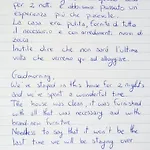 per 2 notti. Abbiamo passato un
esperienza più che piacevole.
La casa era pulita, fornita di tutto
il necessario e con arredamenti nuovi di
zecca.
Inutile dire che non sarà l'ultima
volta che verremo qui ad alloggiare.
Goodmorning,
We stayed in this house for 2 nights
and we've spent a wonderful time.
The house was clean, it was furnished
with all that was necessary and with
brand new furniture.
Needless to say that it won't be the
last time we will be staying over